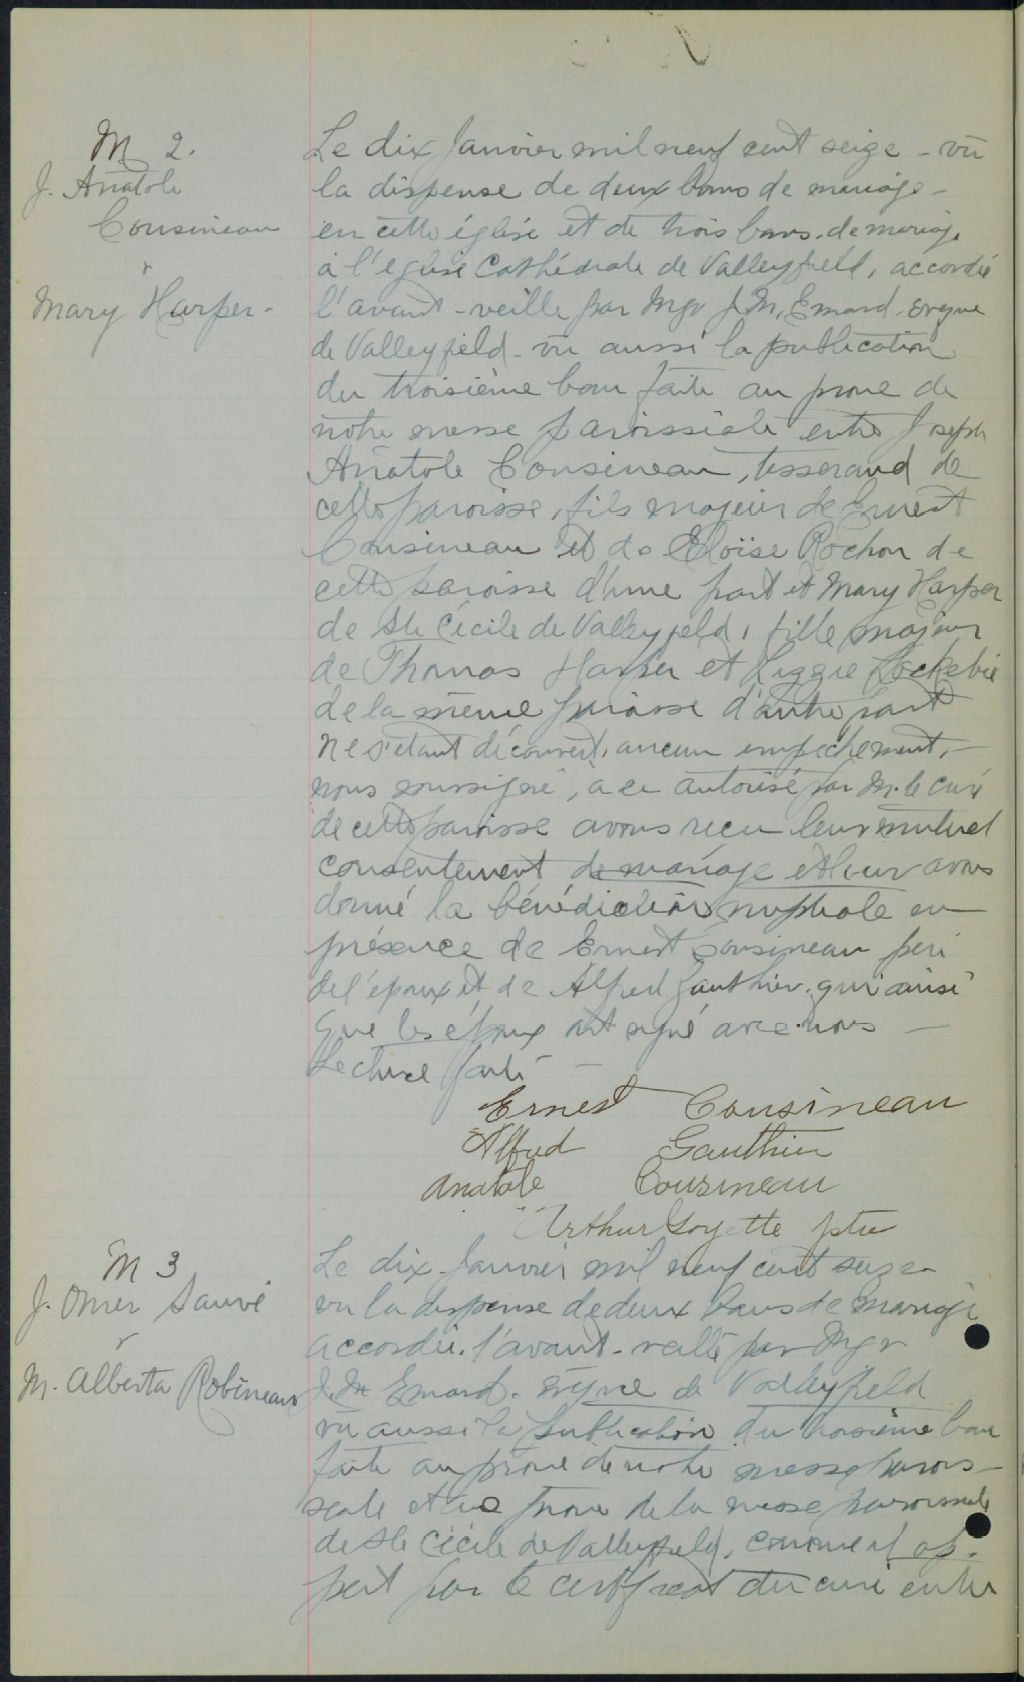 M 2.
J. Anatole
Cousineau
&
Mary Harper.
Le dix Janvier mil neuf cent seize - vu
la dispense de deux bans de mariage -
en cette église et de trois bans de mariage
à l'eglise Cathédrale de Valleyfield, accordée
l'avant-veille par Mgr J. M. Emard. evêque
de Valleyfield - vu aussi la publication
du troisième ban faite au prone de
notre messe paroissiale entre Joseph
Anatole Cousineau, tisserand de
cette paroisse, fils majeur de Ernest
Cousineau et de Eloïse Rochon de
cette paroisse d'une part et Mary Harper
de Ste Cécile de Valleyfield, fille majeur
de Thomas Harper et Liggie Lockebie
de la même paroisse d'autre part
ne s'étant découvert aucun empechement, -
nous soussigné, a ce autorisé par M. le curé
de cette paroisse avons reçu leur mutuel
consentement de mariage et leur avons
donné la bénédiction nuptiale en
présence de Ernest Cousineau père
de l'époux et de Alfred Gauthier. qui ainsi
que les époux ont signé avec nous -
Lecture faite -
Ernest Cousineau
Alfred Gauthier
Anatole Cousineau
Arthur Goyette ptre
M 3
J. Omer Sauvé
&
M. Alberta Robineau
Le dix Janvier mil neuf cent seize
vu la dispense de deux bans de mariage
accordée. l'avant-veille par Mgr
J. M. Emard. evêque de Valleyfield
vu aussi la publication du troisième ban
faite au prone de notre messe parois-
siale et au prone de la messe paroissiale
de Ste Cécile de Valleyfield, comme il ap-
pert par le certificat du curé entre